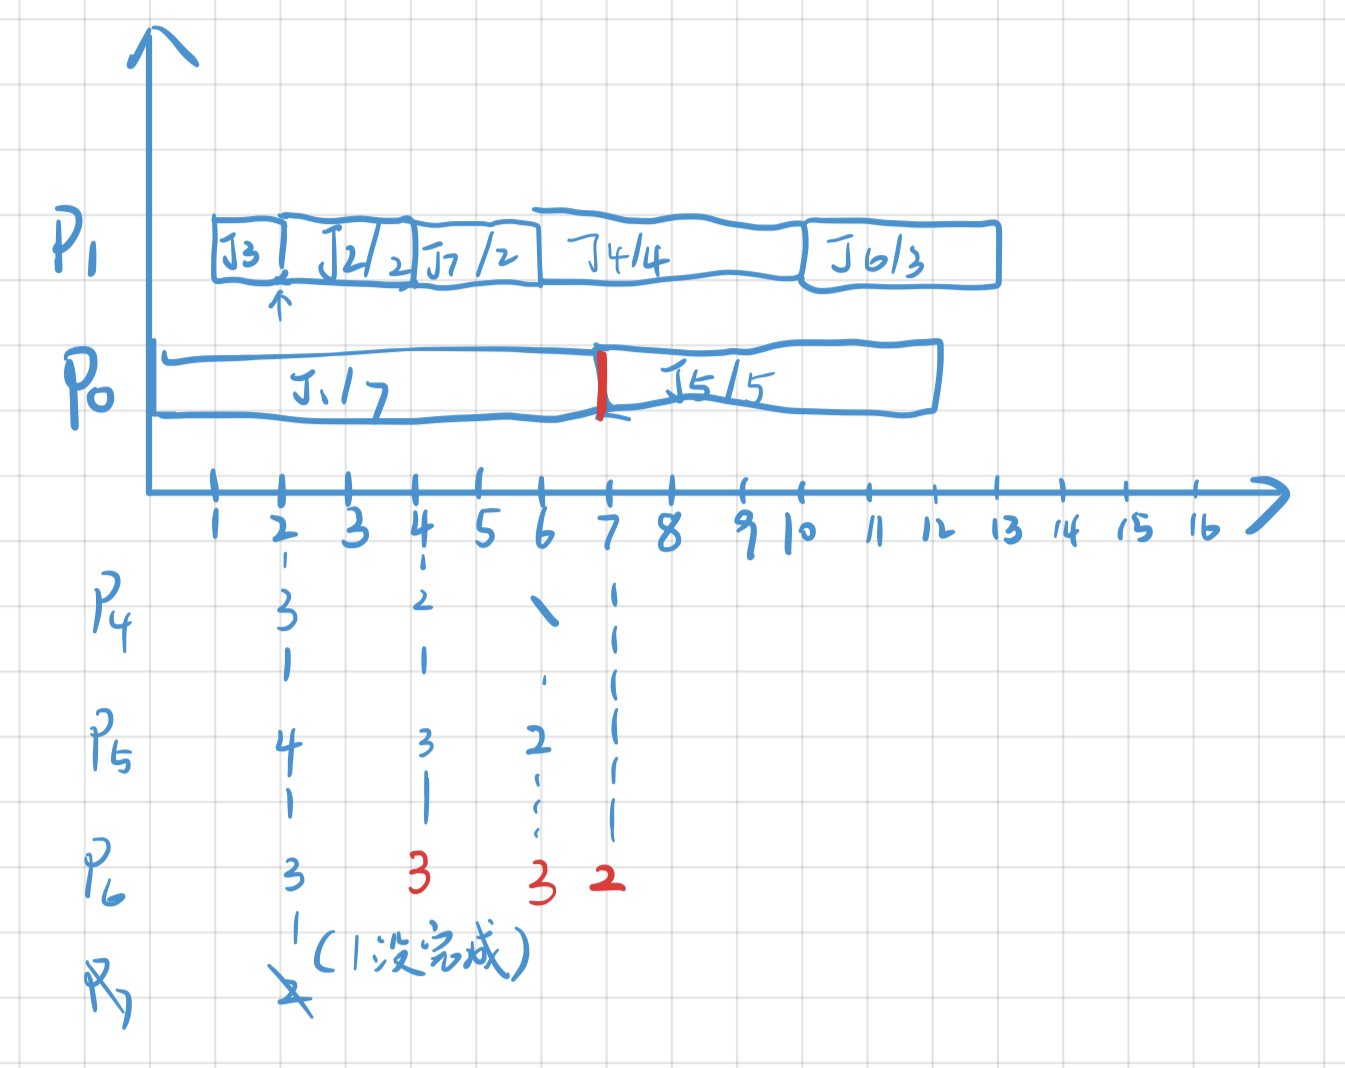 P1 J3 J2/2 J7/2 J4/4 J6/3
↑
P0 J1/7 J5/5
1 2 3 4 5 6 7 8 9 10 11 12 13 14 15 16
P4 3 2 \
P5 4 3 2
P6 3 3 3 2
(1没完成)
P7 2